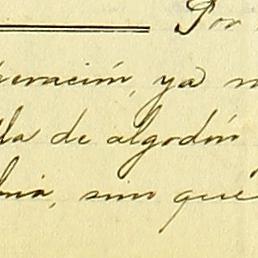 Por
eración, ya
la de algodón
bia, sino que